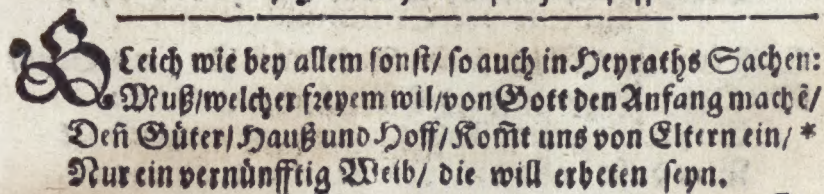 Gleich wie bey allem sonst/ so auch in Heyraths Sachen:
Muß/welcher freyem wil/von Gott den Anfang machẽ/
Deñ Güter/ Hauß und Hoff/ Kom̃t uns von Eltern ein/ *
Nur ein vernünfftig Weib/ die will erbeten seyn.